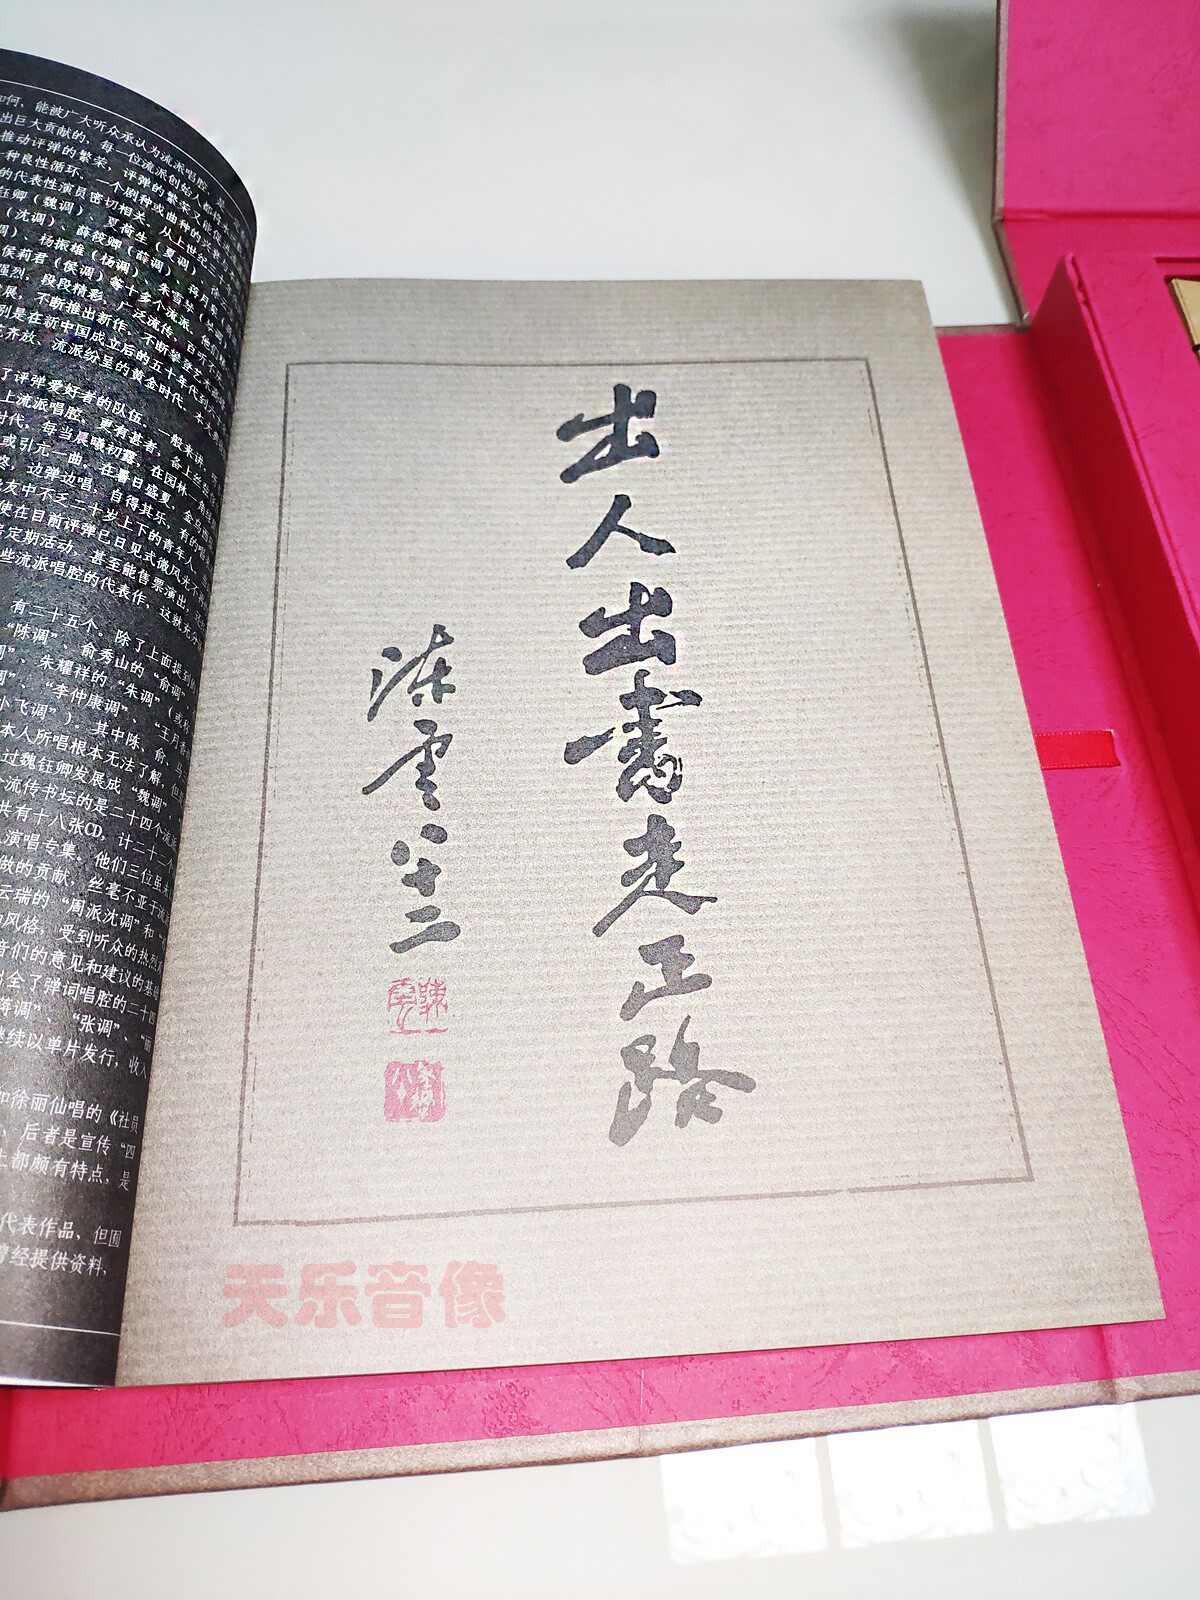 如何，能被广大听众承认为流派唱腔，是一
出巨大贡献的，每一位流派创始人都将
推动评弹的繁荣，评弹的繁荣又能促
一种良性循环。一个剧种或曲种的兴衰
的代表性演员密切相关，从上世纪二
钰卿（魏调）、夏荷生（夏调）
（沈调）、薛筱卿（薛调）
调）、杨振雄（杨调）、朱雪琴
侯莉君（侯调）等十多个流派
强烈，段段精彩，广泛流传，百听不
展，不断推出新作，不断攀登艺术高峰
别是在新中国成立后的五十年代到
花齐放、流派纷呈的黄金时代
了评弹爱好者的队伍，一般来讲
上流派唱腔，更有甚者，备上丝弦
时代，每当晨曦初露，在园林一角
或引亢一曲。在暑日盛夏
边弹边唱，自得其乐，有的
友中不乏二十岁上下的青年人
使在目前评弹已日见式微风光
定期活动，甚至能售票演出
些流派唱腔的代表作，这就充分
有二十五个。除了上面提到的
“陈调”、俞秀山的“俞调”
朱耀祥的“朱调”（或称
“李仲康调”、“王月香调
小飞调”）。其中陈、俞、马
本人所唱根本无法了解，但
过魏钰卿发展成“魏调”，
流传书坛的是二十四个流派
共有十八张CD，计二十二个
演唱专集。他们三位虽未
做的贡献，丝毫不亚于流
云瑞的“周派沈调”和
风格，受到听众的热烈
音们的意见和建议的基础
全了弹词唱腔的二十四
蒋调”、“张调”、“丽
继续以单片发行，收入
如徐丽仙唱的《社员
、后者是宣传“四
上都颇有特点，是
代表作品，但囿
曾经提供资料，
出人出書走正路
陈云八十二
陳雲
天乐音像